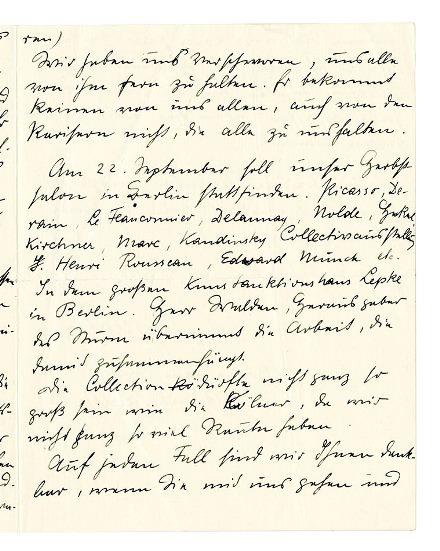 ren)
Wir haben uns verschworen, uns alle
von ihm fern zu halten. Er bekommt
keinen von uns allen, auch von den
Parisern nicht, die alle zu uns halten.
Am 22. September soll unser Herbst
salon in Berlin stattfinden. Picasso, De-
rain, Le Fauconnier, Delaunay, Nolde, Heckel
Kirchner Marc, Kandinsky Collectivausstellg
H. Henri Rousseau, Edward Munch etc.
In dem großen Kunstauktionshaus Lepke
in Berlin. Herr Walden, Herausgeber
des Sturm übernimmt die Arbeit, die
damit zusammenhängt.
Die Collection dürfte nicht ganz so
groß sein wie die Kölner, da wir
nicht ganz so viel Räume haben.
Auf jeden Fall sind wir Ihnen dank-
bar, wenn Sie mit uns gehen und